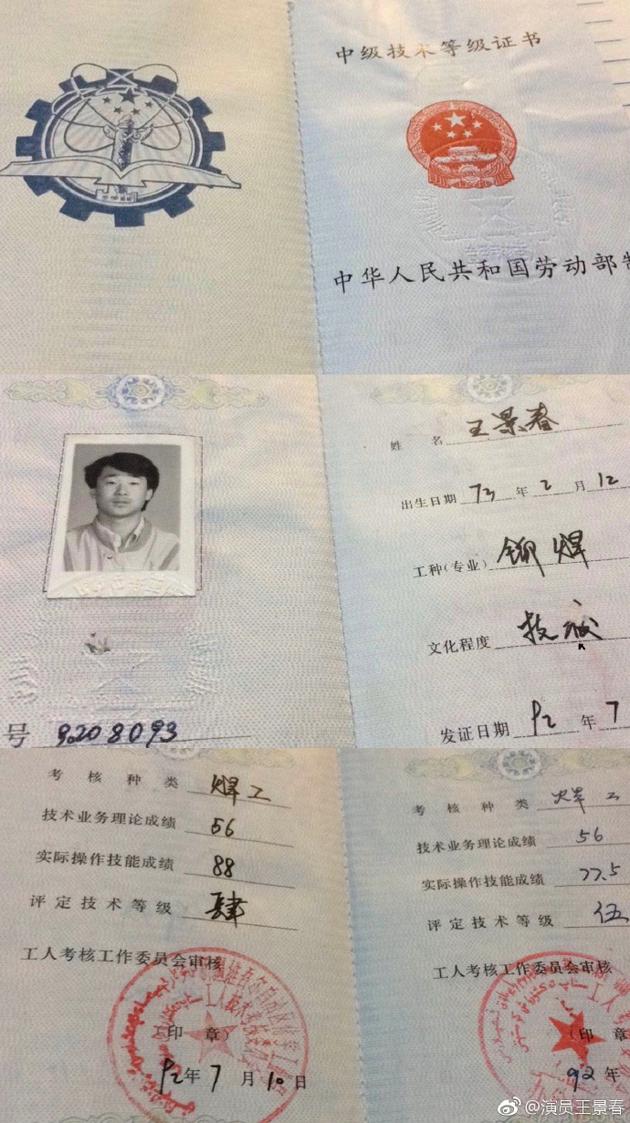 中级技术等级证书
中华人民共和国劳动部制
姓名 王景春
出生日期 73年2月12
工种(专业) 铆焊
文化程度 技校
发证日期 92年7
号 9208093
考核种类 焊工
技术业务理论成绩 56
实际操作技能成绩 88
评定技术等级 肆
工人考核工作委员会审核
(印章)
92年7月10日
考核种类 焊工
技术业务理论成绩 56
实际操作技能成绩 77.5
评定技术等级 伍
工人考核工作委员会审核
(印章
92年
@演员王景春